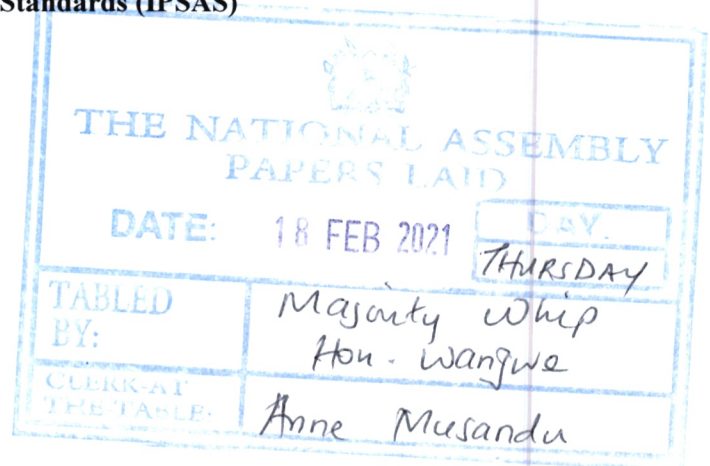 Standards (IPSAS)
THE NATIONAL ASSEMBLY
PAPERS LAID
DATE: 18 FEB 2021 DAY.
THURSDAY
TABLED BY: Majority Whip
Hon. Wangwe
CLERK-AT THE-TABLE: Anne Musandu